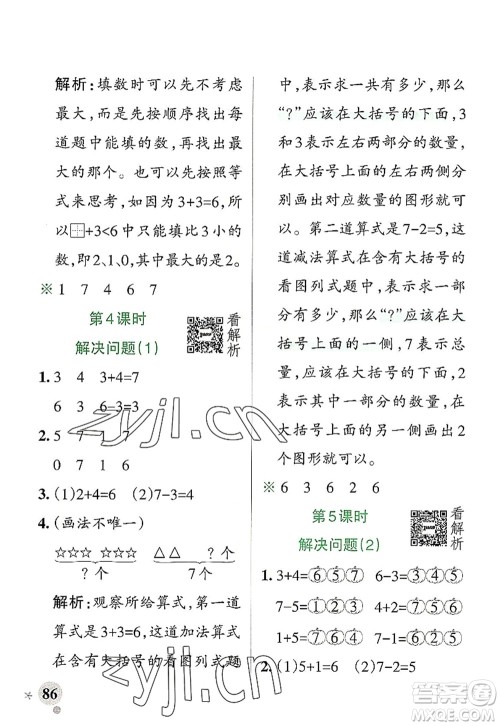 解析:填数时可以先不考虑
最大,而是先按顺序找出每
道题中能填的数,再找出最
大的那个。可以先按照等
式来思考,如 3+3=6,
所以□+3<6 中只能填比 3 小的
数,即2、1、0,其中最大的是2。
※ 1 7 4 6 7
第4课时
解决问题(1)
看解析
1. 3 4 3+4=7
6 3 6-3=3
2. 5 7 7
0 7 1 6
3. (1)2+4=6 (2)7-3=4
4. (画法不唯一)
☆☆☆ ☆☆☆ △△ △△△
? 个 ? 个
7 个
解析:观察所给算式,第一道
算式是3+3=6,这道加法算式
在含有大括号的看图列式题
86
中,表示求一共有多少,那么
“?”应该在大括号的下面,3
和3是左右两部分的数量,
在大括号上面的左右两侧
分别画出对应数量的图形就可
以。第二道算式是7-2=5,这
道减法算式在含有大括号的
看图列式题中,表示求剩下
的数量,那么“?”应该在大括
号上面的一侧,7表示总数,
应该写在大括号的下面,2表
示其中一部分的数量,在大
括号上面的另一侧画出2
个图形就可以。
※ 6 3 6 2 6
第5课时
解决问题(2)
看解析
1. 3+4=⑥⑤⑦ 6-3=③④⑤
7-5=①②③ 7-1=④⑤⑥
1+5=④⑤⑥ 7-2=⑤③④
2. (1)5+1=6 (2)7-2=5
zyjl.cn
答案圈
MXQE.COM